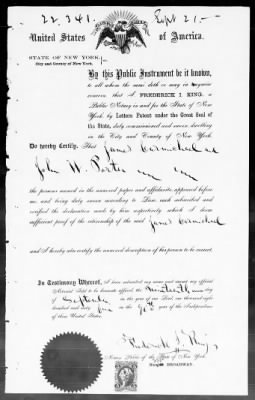 22.341. Sept 21.—
United States of America.
STATE OF NEW YORK,
City and County of New York,
By this Public Instrument be it known,
to all whom the same doth or may in anywise
concern that I FREDERICK I. KING, a
Public Notary in and for the State of New
York by Letters Patent under the Great Seal of
the State, duly commissioned and sworn dwelling
in the City and County of New York.
Do hereby Certify, That James Carmichael and
John W. Porter
the persons named in the annexed paper and affidavits appeared before
me and being duly sworn according to Law, each subscribed and
verified the declaration made by him respectively which I deem
sufficient proof of the citizenship of the said James Carmichael
and I hereby also certify the annexed description of his person to be correct.
In Testimony Whereof, I have subscribed my name and caused my official
Notarial Seal to be hereunto affixed, the nineteenth day
of September in the year of our Lord, one thousand eight
hundred and sixty five in the 90th year of the Independence
of these United States.
Frederick I. King
Notary Public of the State of New York.
BROADWAY.